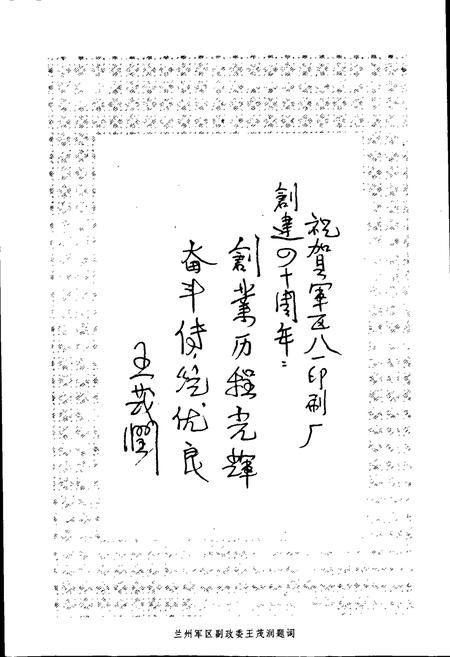 祝贺軍区八一印刷厂
創建四十周年：
創業历程光輝
奋斗传统优良
王茂潤
兰州军区副政委王茂润题词